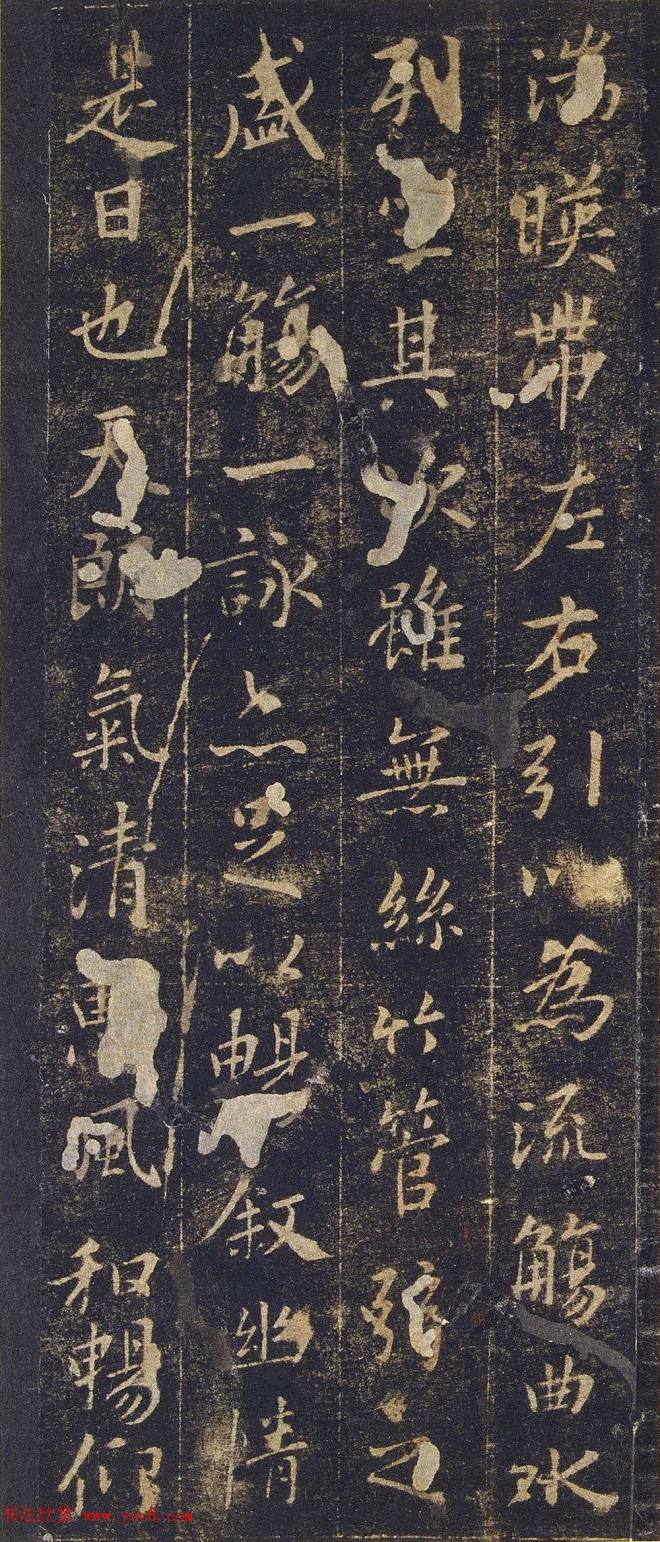 湍暎帶左右引以為流觴曲水
列坐其次雖無絲竹管弦之
盛一觴一詠亦足以暢敘幽情
是日也天朗氣清惠風和暢仰
书法欣赏 www.yac8.com